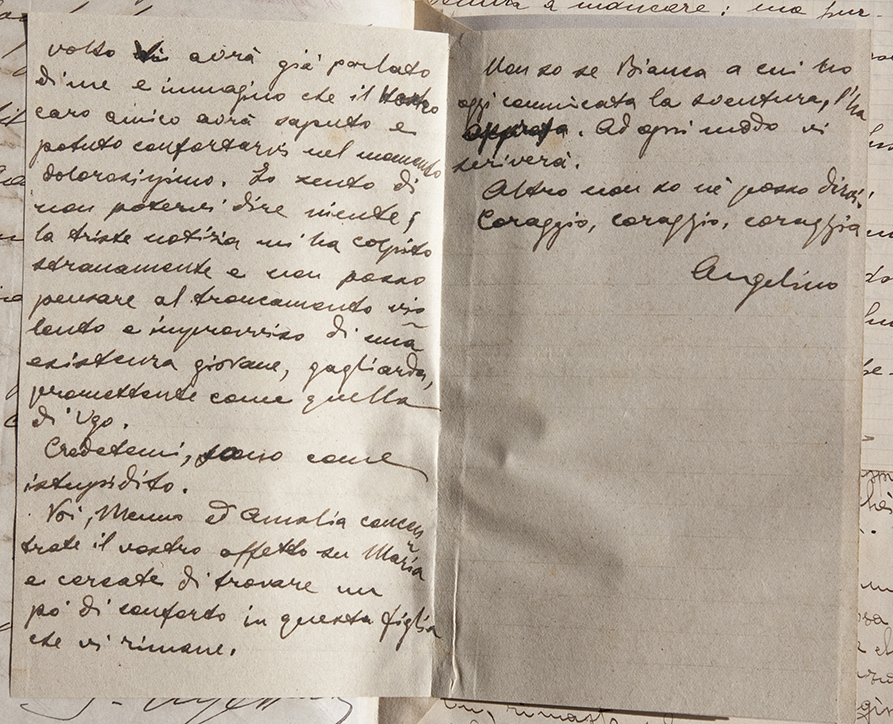 volto vi avrà già parlato
di me e immagino che il vostro
caro amico avrà saputo e
potuto confortarvi nel momento
dolorosissimo. Io sento di
non potervi dire niente;
la triste notizia mi ha colpito
stranamente e non posso
pensare al troncamento vio
lento e improvviso di una
esistenza giovane, gagliarda,
promettente come quella
di Ugo.
Credetemi, sono come
istupidito.
Voi, Memmo ed Amalia concen
trate il vostro affetto su Maria
e cercate di trovare un
po' di conforto in questa figlia
che vi rimane.
Non so se Bianca a cui ho
oggi comunicata la sventura, l'ha
appresa. Ad ogni modo vi
scriverà.
Altro non so nè posso dirvi.
Coraggio, coraggio, coraggio
Angelino
a mancare; ma pur-